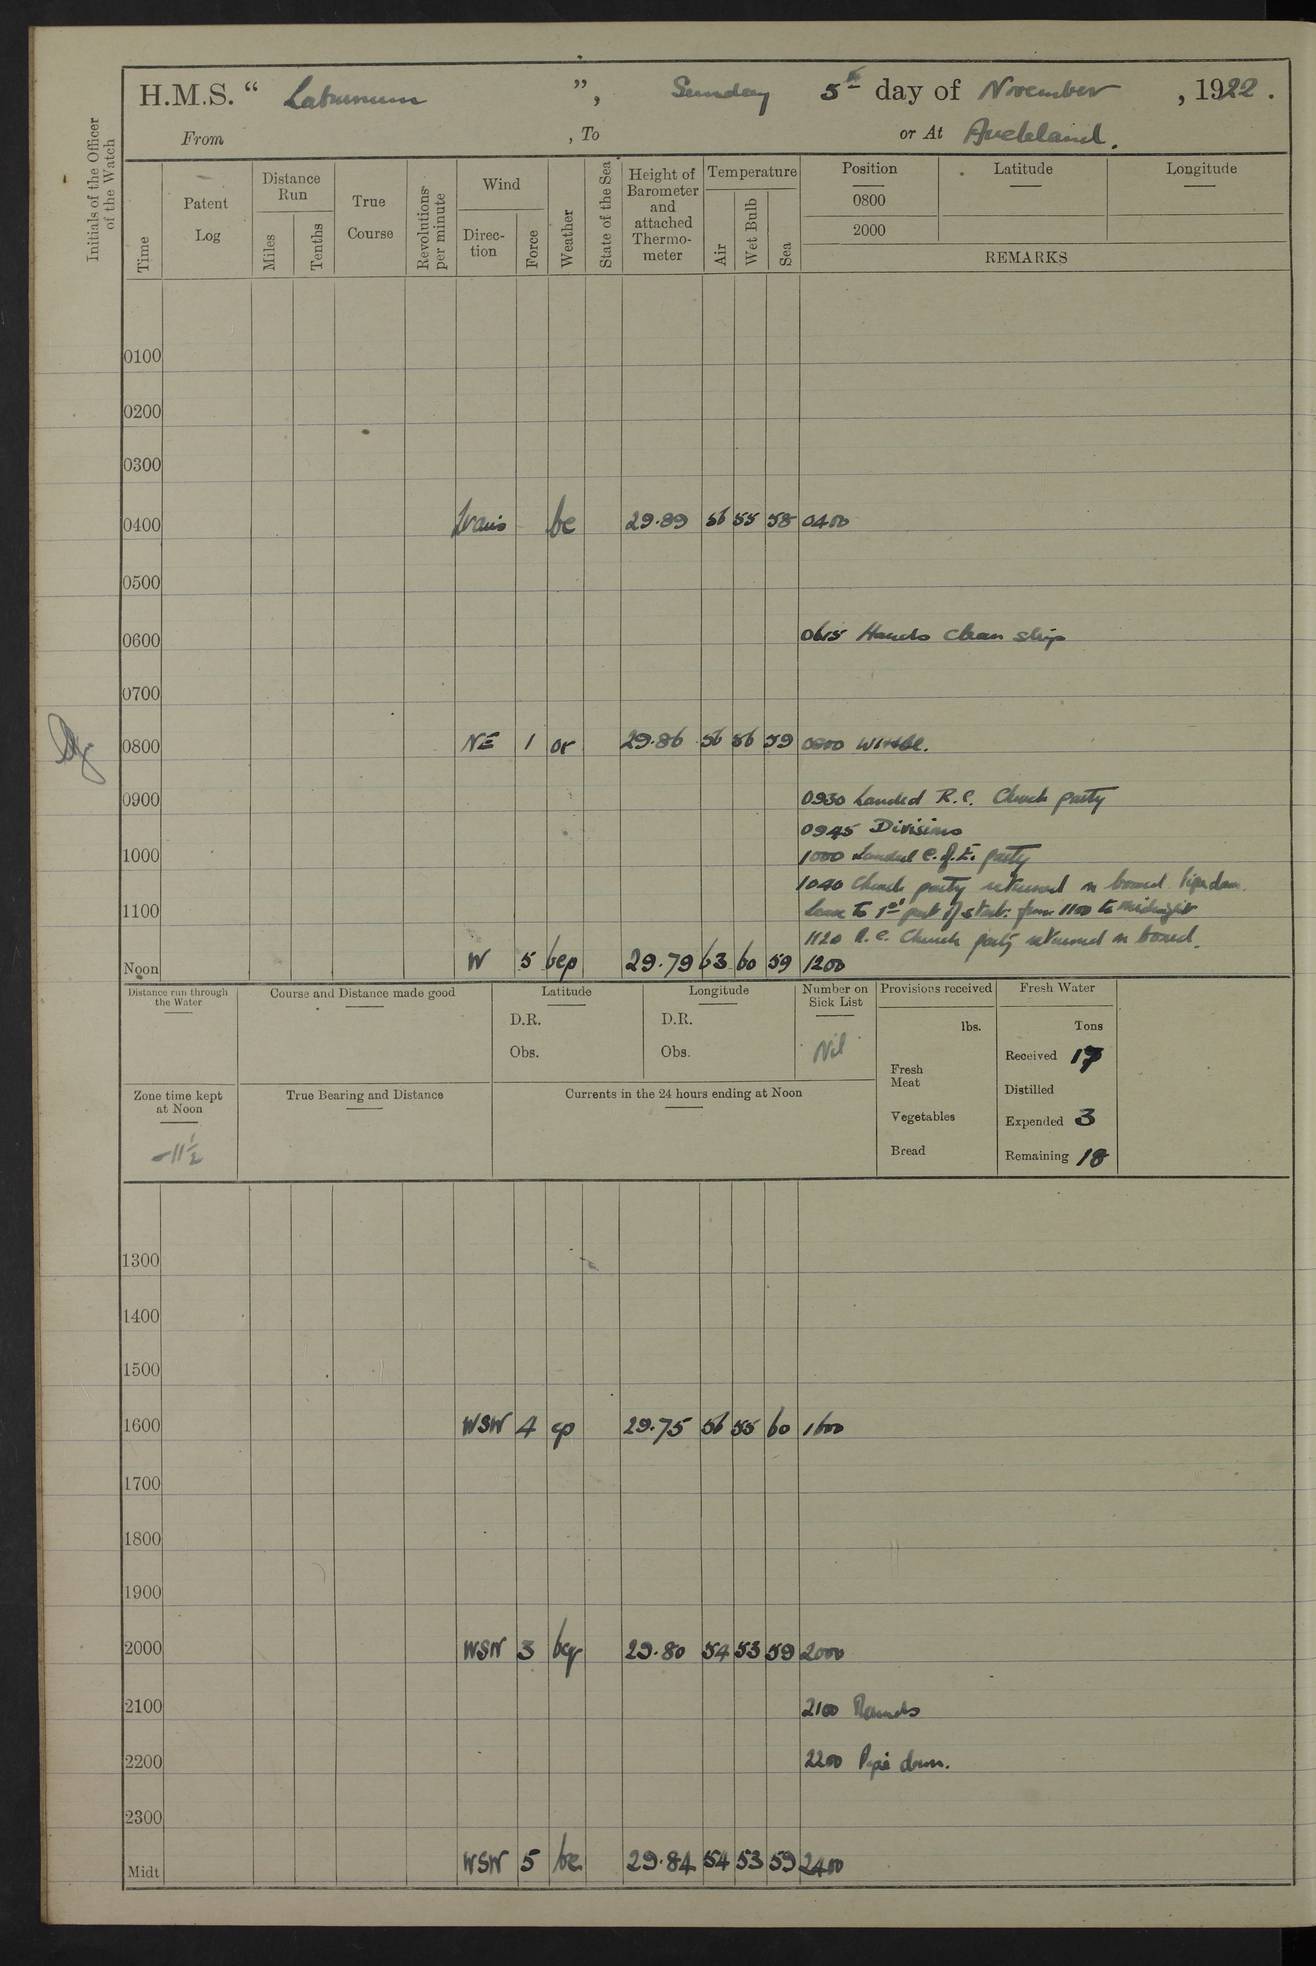 H.M.S. “ Laburnum ”, Sunday 5th day of November , 1922.
From , To or At Auckland.
Initials of the Officer of the Watch
Time
Patent Log
Distance Run
Miles
Tenths
True Course
Revolutions per minute
Wind
Direc-tion
Force
Weather
State of the Sea
Height of Barometer and attached Thermo-meter
Temperature
Air
Wet Bulb
Sea
Position
0800
2000
Latitude
Longitude
REMARKS
0100
0200
0300
0400 bc 29.89 56 55 58 0400
0500
0600 0615 Hands clean ship
0700
0800 NE 1 or 29.86 56 56 59 0800
0900 0930 Landed R.C. Church party
0945 Divisions
1000 1000 Landed C. of E. party
1040 Church party returned on board. Pipe down.
1100 Leave to 1st part of starb: from 1100 to midnight
1120 R.C. Church party returned on board.
Noon W 5 bcp 29.79 63 60 59 1200
Distance run through the Water
Course and Distance made good
Latitude
D.R.
Obs.
Longitude
D.R.
Obs.
Number on Sick List
Nil
Provisions received
lbs.
Fresh Meat
Vegetables
Bread
Fresh Water
Tons
Received 17
Distilled
Expended 3
Remaining 18
Zone time kept at Noon
-11½
True Bearing and Distance
Currents in the 24 hours ending at Noon
1300
1400
1500
1600 WSW 4 cp 29.75 56 55 60 1600
1700
1800
1900
2000 WSW 3 bcq 29.80 54 53 59 2000
2100 2100 Rounds
2200 2200 Pipe down.
2300
Midt WSW 5 bc 29.84 54 53 59 2400